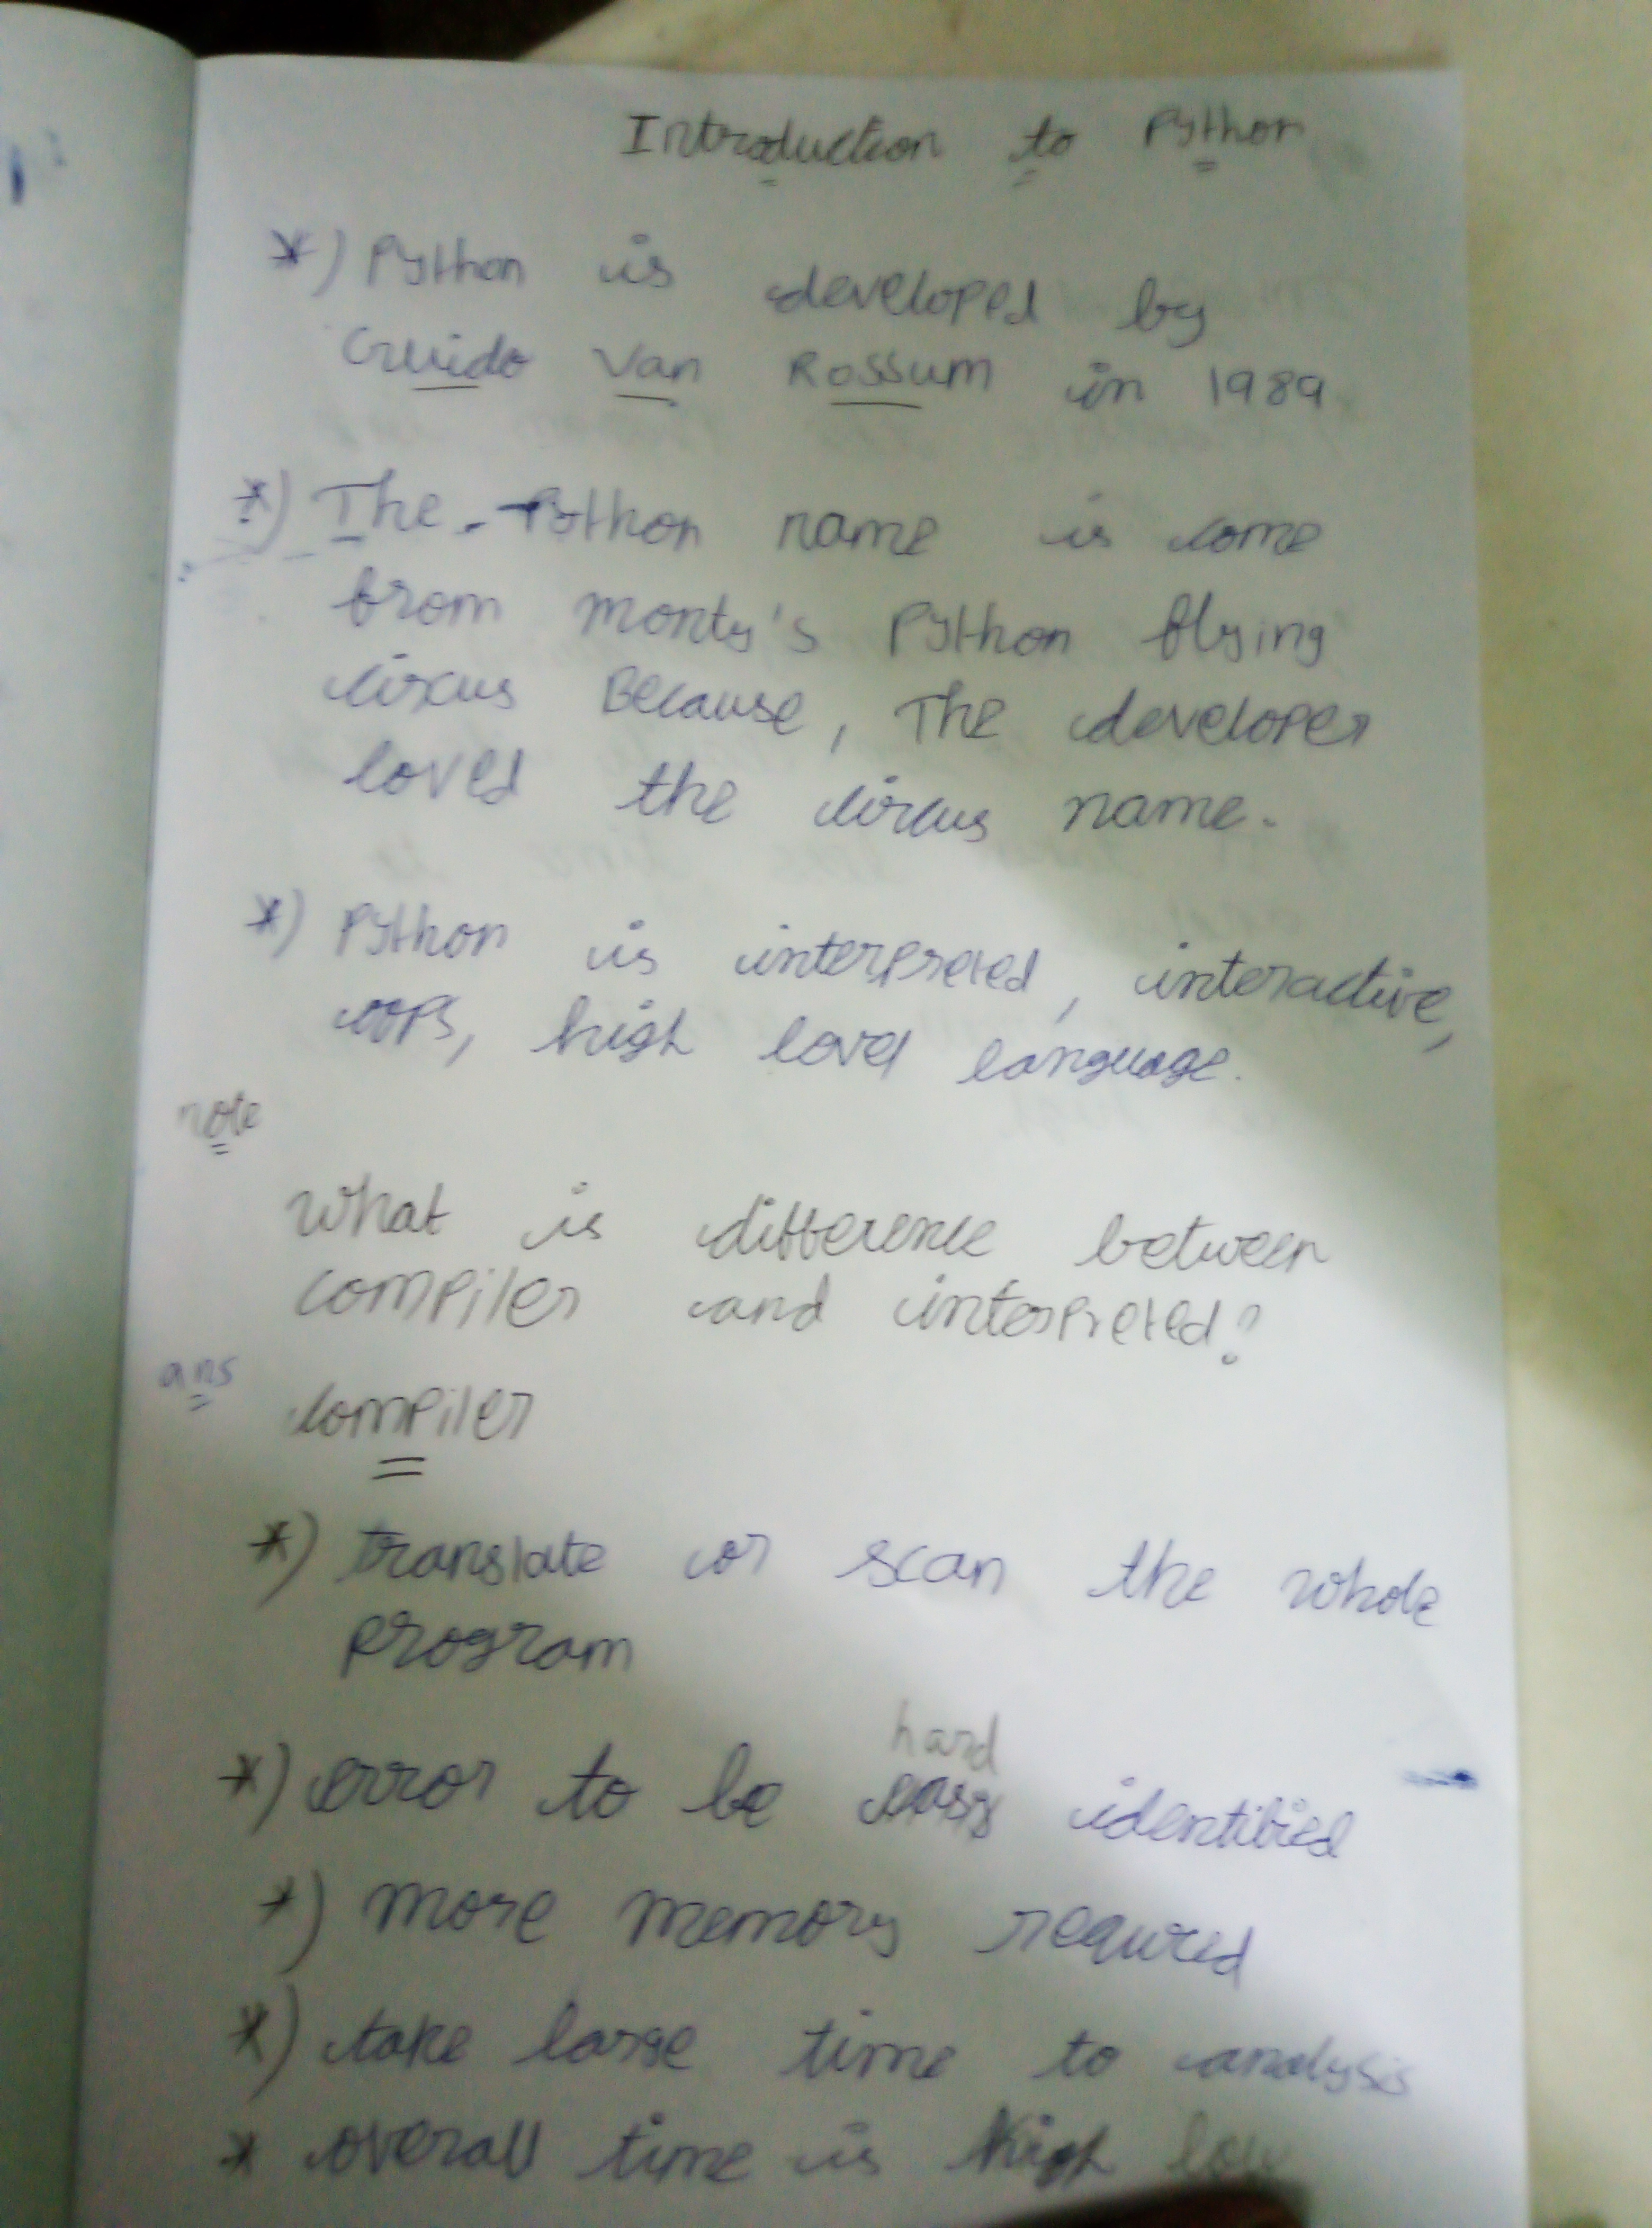 Introduction to Python
*) Python is developed by
Guido Van Rossum in 1989
*) The Python name is come
from monty's Python flying
circus Because, The developer
loved the circus name.
*) Python is interpreted, interactive,
oops, high level language.
note
What is difference between
compiler and interpreted?
ans
compiler
*) translate or scan the whole
program
hard
*) error to be easy identified
*) more memory required
*) take large time to analysis
* overall time is high low